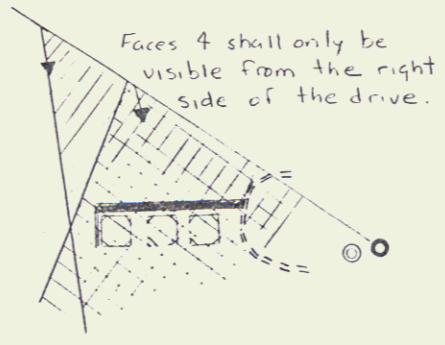 Faces 4 shall only be
visible from the right
side of the drive.